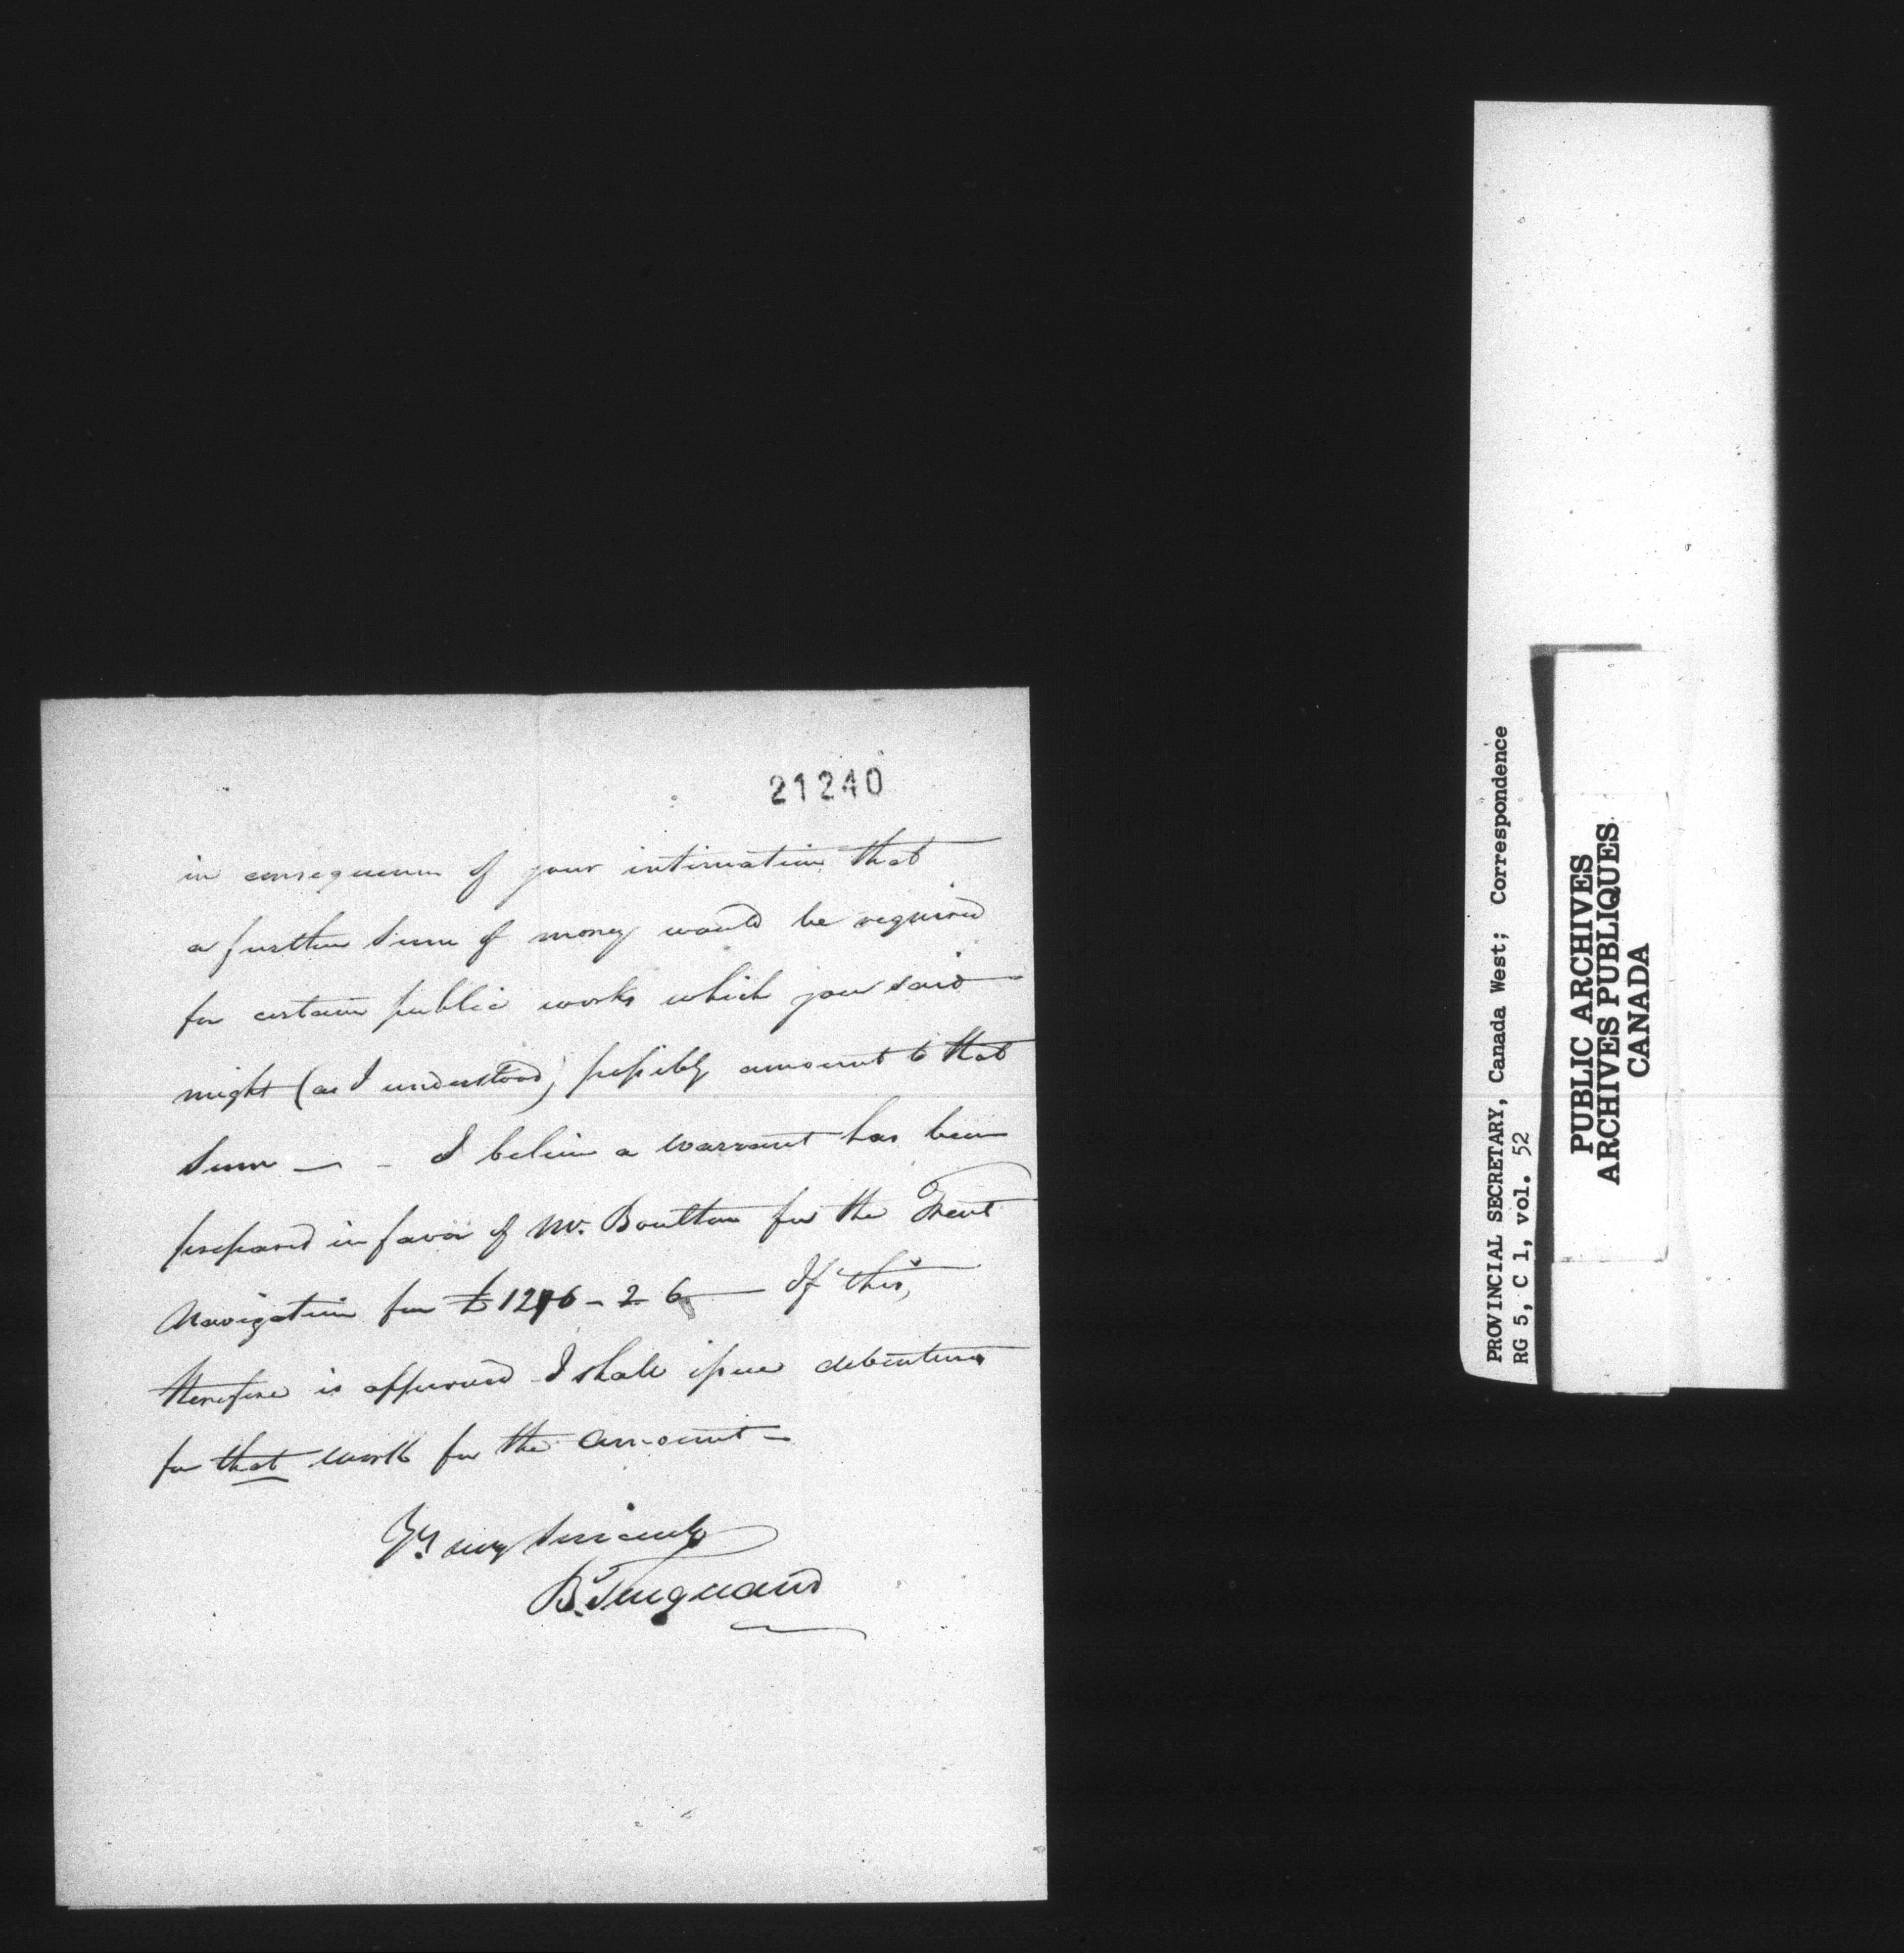 21240
in consequence of your intimation that
a further sum of money would be required
for certain public works which you said
might (as I understood) possibly amount to that
Sum — - I believe a Warrant has been
prepared in favor of Mr. Boulton for the Trent
Navigation for £ 1276 - 2 6 — If this,
therefore is approved I shall issue debentures
for that work for the amount -
Yrs very Sincerely
B. Turquand
PROVINCIAL SECRETARY, Canada West; Correspondence
RG 5, C 1, vol. 52
PUBLIC ARCHIVES
ARCHIVES PUBLIQUES
CANADA